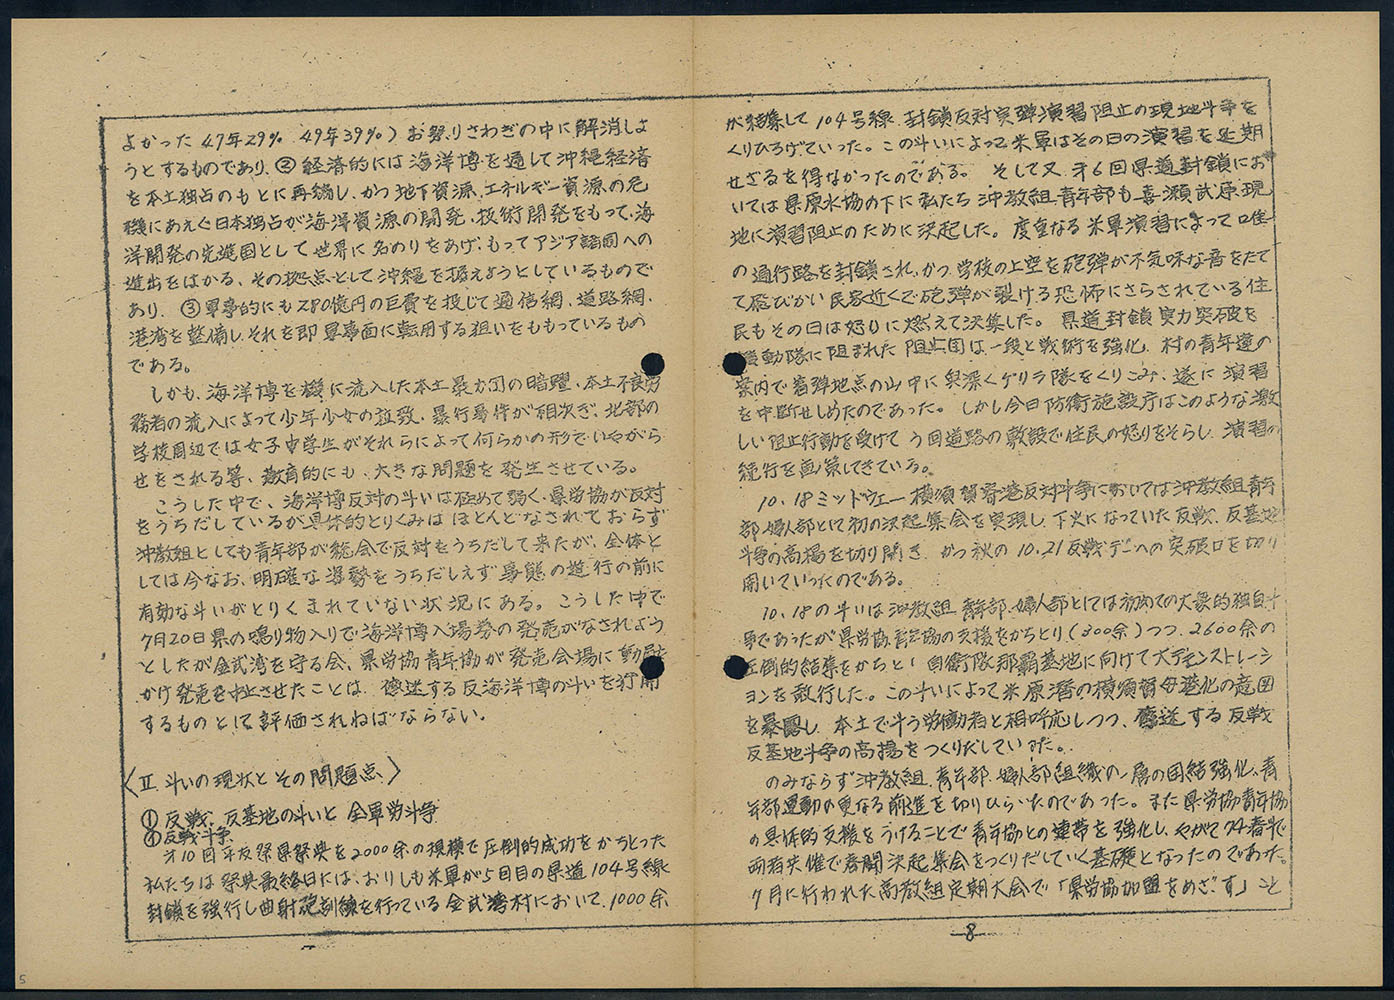 よかった 47年29% 49年39%)お祭りさわぎの中に解消しよ
うとするものであり、②経済的には海洋博を通して沖縄経済
を本土独占のもとに再編し、かつ地下資源、エネルギー資源の危
機にあえぐ日本独占が海洋資源の開発、技術開発をもって、海
洋開発の先進国として世界に名のりをあげ、もってアジア諸国への
進出をはかる、その拠点として沖縄を据えようとしているもので
あり、③軍事的にも280億円の巨費を投じて通信網、道路網、
港湾を整備し、それを即軍事面に転用する狙いをももっているもの
である。
しかも、海洋博を機に流入した本土暴力団の暗躍、本土不良労
務者の流入によって少年少女の拉致、暴行事件が相次ぎ、北部の
学校周辺では女子中学生がそれらによって何らかの形でいやがら
せをされる等、教育的にも、大きな問題を発生させている。
こうした中で、海洋博反対の斗いは極めて弱く、県労協が反対
をうちだしているが具体的とりくみはほとんどなされておらず
沖教組としても青年部が総会で反対をうちだして来たが、全体と
しては今なお、明確な姿勢をうちだしえず事態の進行の前に
有効な斗いがとりくまれていない状況にある。こうした中で
7月20日県の鳴り物入りで海洋博入場券の発売がなされよう
としたが金武湾を守る会、県労協青年協が発売会場に動員を
かけ発売を中止させたことは、後退する反海洋博の斗いを打開
するものとして評価されねばならない。
〈Ⅱ 斗いの現状とその問題点〉
① 反戦、反基地の斗いと全軍労斗争
④反戦斗争
才10回平友祭県祭典を2000余の規模で圧倒的成功をかちとった
私たちは祭典最終日には、おりしも米軍が5回目の県道104号線
封鎖を強行し曲射砲訓練を行っている金武湾村において、1000余
が結集して104号線 封鎖反対実弾演習阻止の現地斗争を
くりひろげていった。この斗いによって米軍はその日の演習を延期
せざるを得なかったのである。 そして又、才6回県道封鎖にお
いては県原水協の下に私たち 沖教組青年部も喜瀬武原現
地に演習阻止のために決起した。度重なる米軍演習によって唯一
の通行路を封鎖され、かつ学校の上空を砲弾が不気味な音をたて
て飛びかい民家近くで砲弾が裂ける恐怖にさらされている住
民もその日は怒りに燃えて決集した。 県道封鎖実力突破を
機動隊に阻まれた阻止団は一段と戦術を強化、村の青年達の
案内で着弾地点の山中に奥深くゲリラ隊をくりこみ、遂に演習
を中断せしめたのであった。しかし今日防衛施設庁はこのような激
しい阻止行動を受けてう回道路の敷設で住民の怒りをそらし、演習の
続行を画策してきている。
10、18ミッドウェー横須賀寄港反対斗争においては沖教組青年
部・婦人部として初の決起集会を実現し、下火になっていた反戦、反基地
斗争の高揚を切り開き、かつ秋の10.21反戦デーへの突破口を切り
開いていったのである。
10、18の斗いは沖教組 青年部・婦人部としては初めての大衆的独自斗
争であったが県労協、青年協の支援をかちとり(300余)つつ、2600余の
圧倒的結集をかちとり 自衛隊那覇基地に向けて大デモンストレーシ
ョンを敢行した。この斗いによって米原潜の横須賀母港化の意図
を暴露し、本土で斗う労働者と相呼応しつつ、後退する反戦
反基地斗争の高揚をつくりだしていった。
のみならず沖教組、青年部、婦人部組織の一層の団結強化、青
年部運動の更なる前進を切りひらいたのであった。また県労協青年協
の具体的支援をうけることで青年協との連帯を強化し、やがて74春斗で
両者共催で春闘決起集会をつくりだしていく基礎となったのであった。
7月に行われた高教組定期大会で「県労協加盟をめざす」こと
8
5